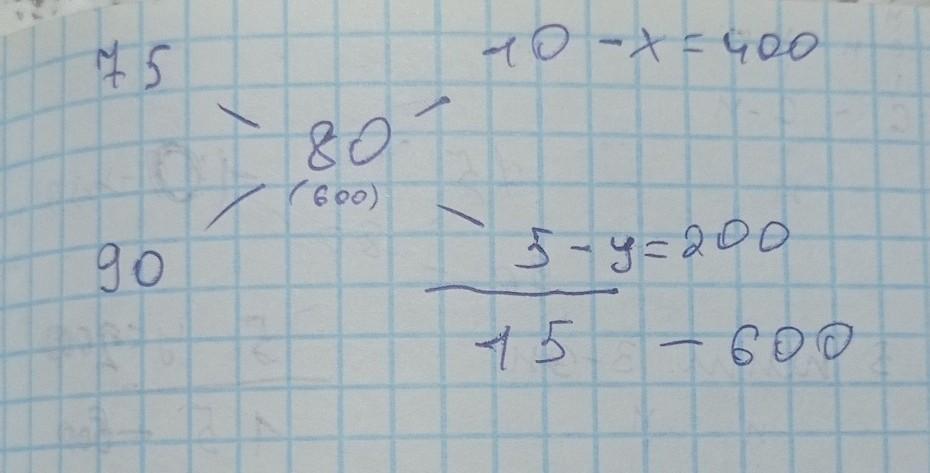 75
10 - x = 400
80
(600)
90
5 - y = 200
15 - 600